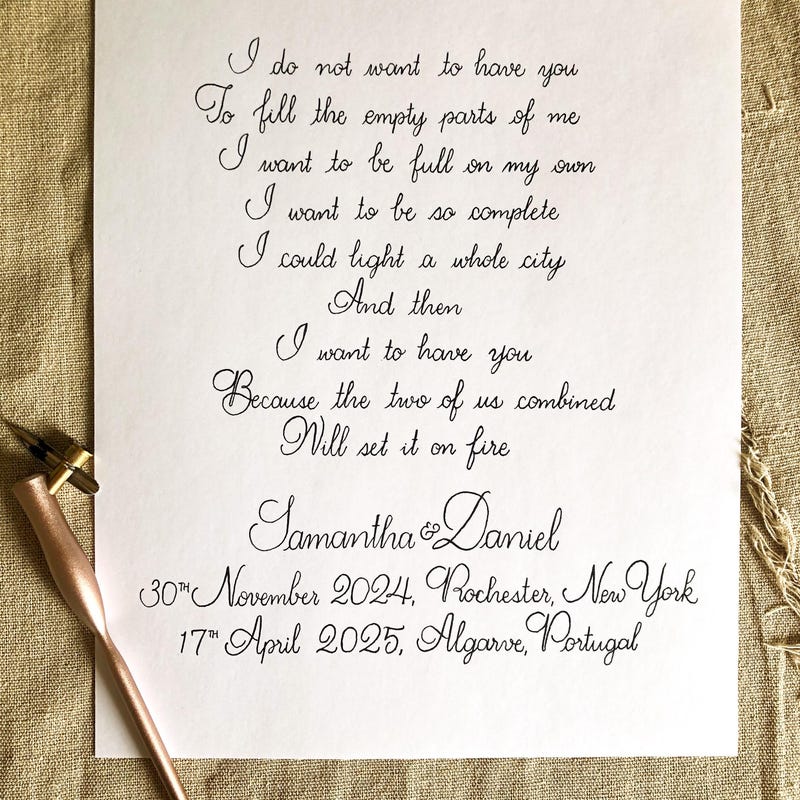 I do not want to have you
To fill the empty parts of me
I want to be full on my own
I want to be so complete
I could light a whole city
And then
I want to have you
Because the two of us combined
Will set it on fire
Samantha & Daniel
30TH November 2024, Rochester, New York
17TH April 2025, Algarve, Portugal